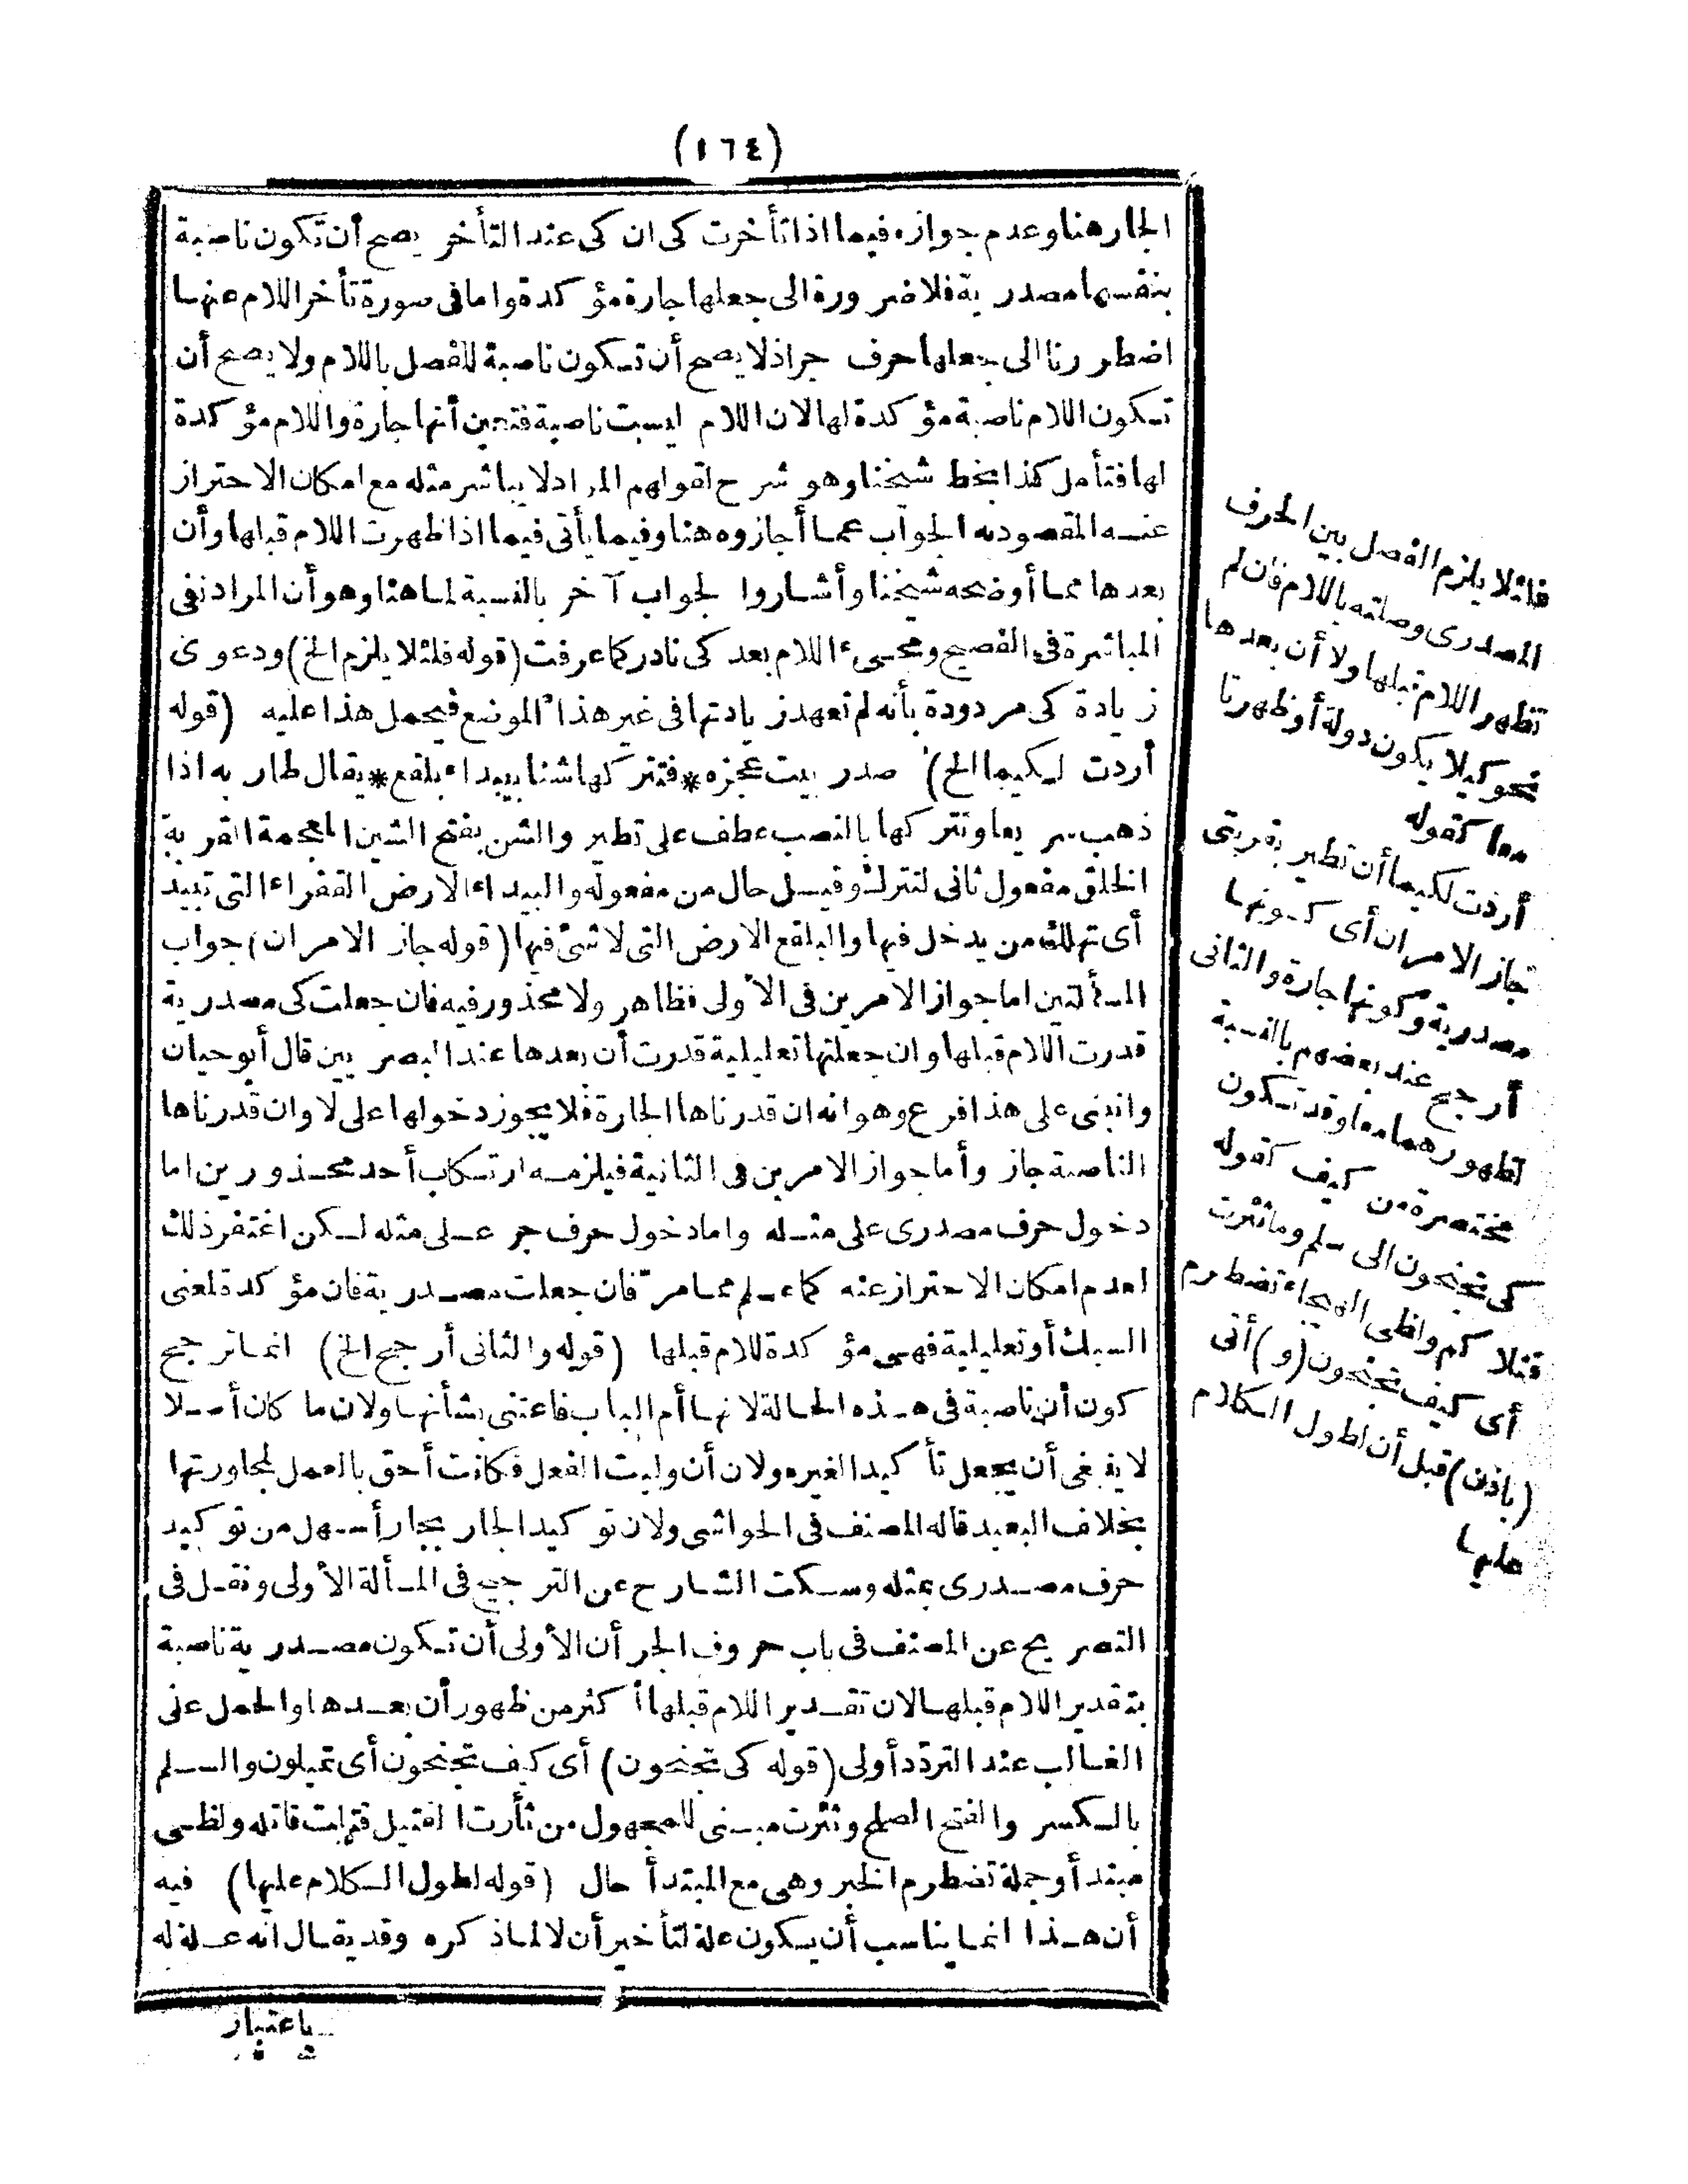 (١٦٤)
الجار هنا وعدم جوازه فيما اذا تأخرت كى ان كى عند التأخر يصح أن تكون ناصبة
بنفسها مصدرية فلا ضرورة الى جعلها جارة مؤكدة واما فى صورة تأخر اللام عنها
اضطررنا الى جعلها حرف جر اذ لا يصح أن تكون ناصبة للفصل باللام ولا يصح أن
تكون اللام ناصبة مؤكدة لها لان اللام ليست ناصبة فتعين أنها جارة واللام مؤكدة
لها فتأمل كذا بخط شيخنا وهو شرح لقولهم المراد لا يباشر مثله مع امكان الاحتراز
عنه المقصود به الجواب عما أجازوه هنا وفيما يأتى فيما اذا ظهرت اللام قبلها وأن
بعدها مما أوضحه شيخنا وأشاروا لجواب آخر بالنسبة لما هنا وهو أن المراد نفى
المباشرة فى الفصيح ومجىء اللام بعد كى نادر كما عرفت (قوله فلئلا يلزم الخ) ودعوى
زيادة كى مردودة بأنه لم تعهد زيادتها فى غير هذا الموضع فيحمل هذا عليه (قوله
أردت لكيما الخ) صدر بيت عجزه * فتتركها شنا ببيداء بلقع * يقال طار به اذا
ذهب سريعا وتتركها بالنصب عطف على تطير والشن بفتح الشين المعجمة القربة
الخلق مفعول ثانى لتترك وقيل حال من مفعوله والبيداء الارض القفراء التى تبيد
أى تهلك من يدخل فيها والبلقع الارض التى لا شئ فيها (قوله جاز الامران) جواب
المسألتين اما جواز الامرين فى الأولى فظاهر ولا محذور فيه فان جعلت كى مصدرية
قدرت اللام قبلها وان جعلتها تعليلية قدرت أن بعدها عند البصريين قال أبو حيان
وانبنى على هذا فرع وهو انه ان قدرناها الجارة فلا يجوز دخولها على لا وان قدرناها
الناصبة جاز وأما جواز الامرين فى الثانية فيلزمه ارتكاب أحد محذورين اما
دخول حرف مصدرى على مثله واما دخول حرف جر على مثله لكن اغتفر ذلك
لعدم امكان الاحتراز عنه كما علم مما مرّ فان جعلت مصدرية فان مؤكدة لمعنى
السبك أو تعليلية فهى مؤكدة للام قبلها (قوله والثانى أرجح الخ) انما ترجح
كون أن ناصبة فى هذه الحالة لانها أم الباب فاعتنى بشأنها ولان ما كان أصلا
لا ينبغى أن يجعل تأكيدا لغيره ولان أن وليت الفعل فكانت أحق بالعمل لمجاورتها
بخلاف البعيد قاله المصنف فى الحواشى ولان توكيد الجار بجار أسهل من توكيد
حرف مصدرى بمثله وسكت الشارح عن الترجيح فى المسألة الأولى ونقل فى
التصريح عن المصنف فى باب حروف الجر أن الأولى أن تكون مصدرية ناصبة
بتقدير اللام قبلها لان تقدير اللام قبلها أكثر من ظهور أن بعدها والحمل على
الغالب عند التردّد أولى (قوله كى تجنحون) أى كيف تجنحون أى تميلون والسلم
بالكسر والفتح الصلح وثئرت مبنى للمجهول من ثأرت القتيل قتلت قاتله ولظى
مبتدأ وجملة تضطرم الخبر وهى مع المبتدأ حال (قوله لطول الكلام عليها) فيه
أن هذا انما يناسب أن يكون علة لتأخير أن لا لما ذكره وقد يقال انه علة له
باعتبار
فلئلا يلزم الفصل بين الحرف
المصدرى وصلته باللام فان لم
تظهر اللام قبلها ولا أن بعدها
نحو كيلا يكون دولة أو ظهرتا
معا كقوله
أردت لكيما أن تطير بقربتى
جاز الامران أى كونها
مصدرية وكونها جارة والثانى
أرجح عند بعضهم بالنسبة
لظهورهما معا وقد تكون
مختصرة من كيف كقوله
كى تجنحون الى سلم وما ثئرت
قتلاكم ولظى الهيجاء تضطرم
أى كيف تجنحون (و) أتى
(باذن) قبل أن لطول الكلام
عليها